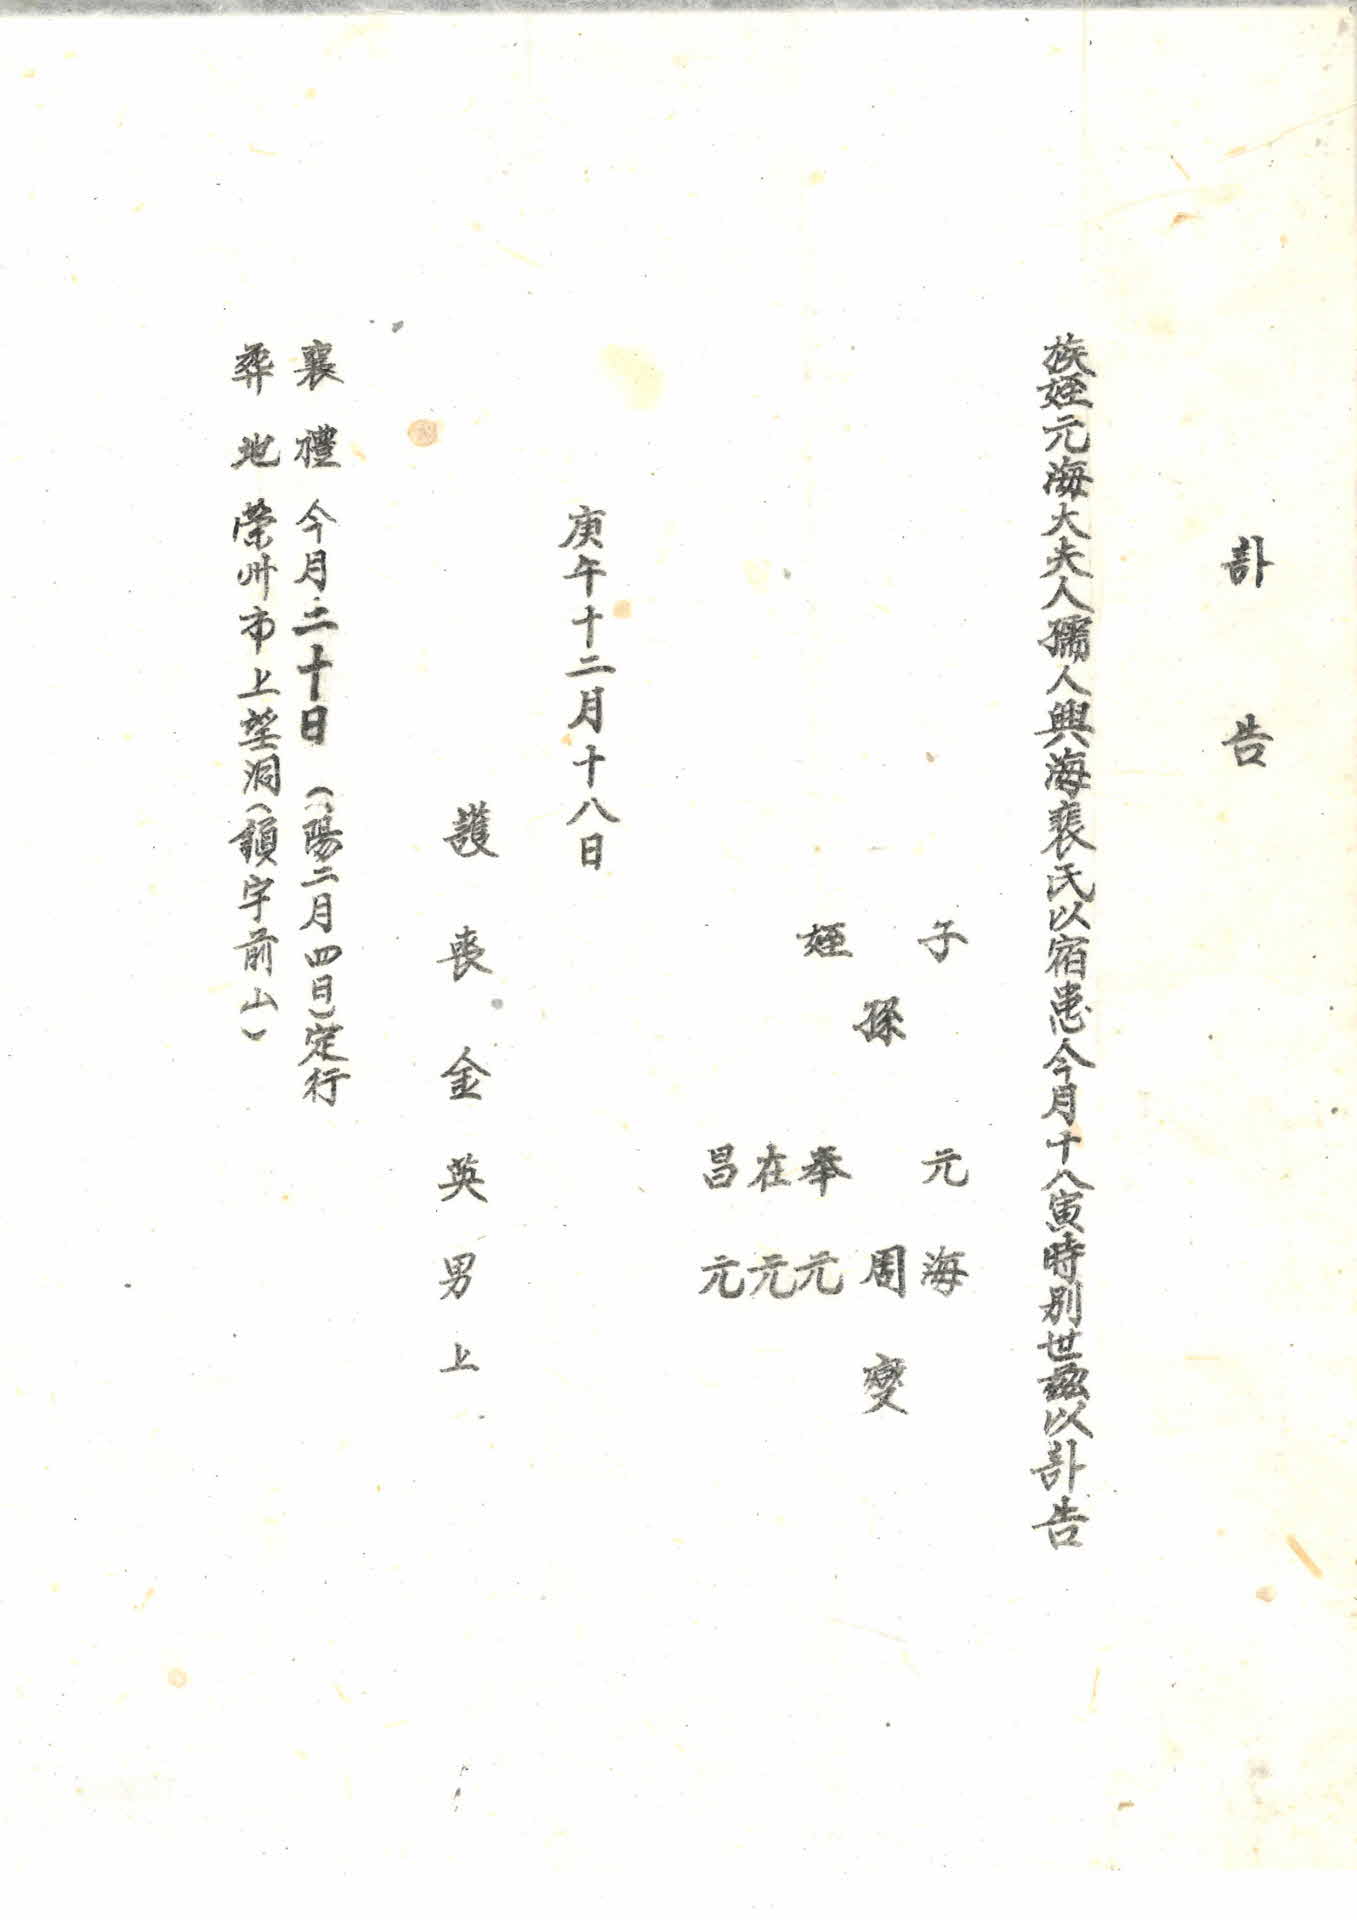 訃告
族姪元海大夫人孺人興海裵氏以宿患今月十八寅時別世玆以訃告
子 元海
孫 周燮
姪 奉元
在元
昌元
庚午十二月十八日
護喪 金英男 上
襄禮 今月二十日(陽二月四日)定行
葬地 榮州市上望洞(額字前山)